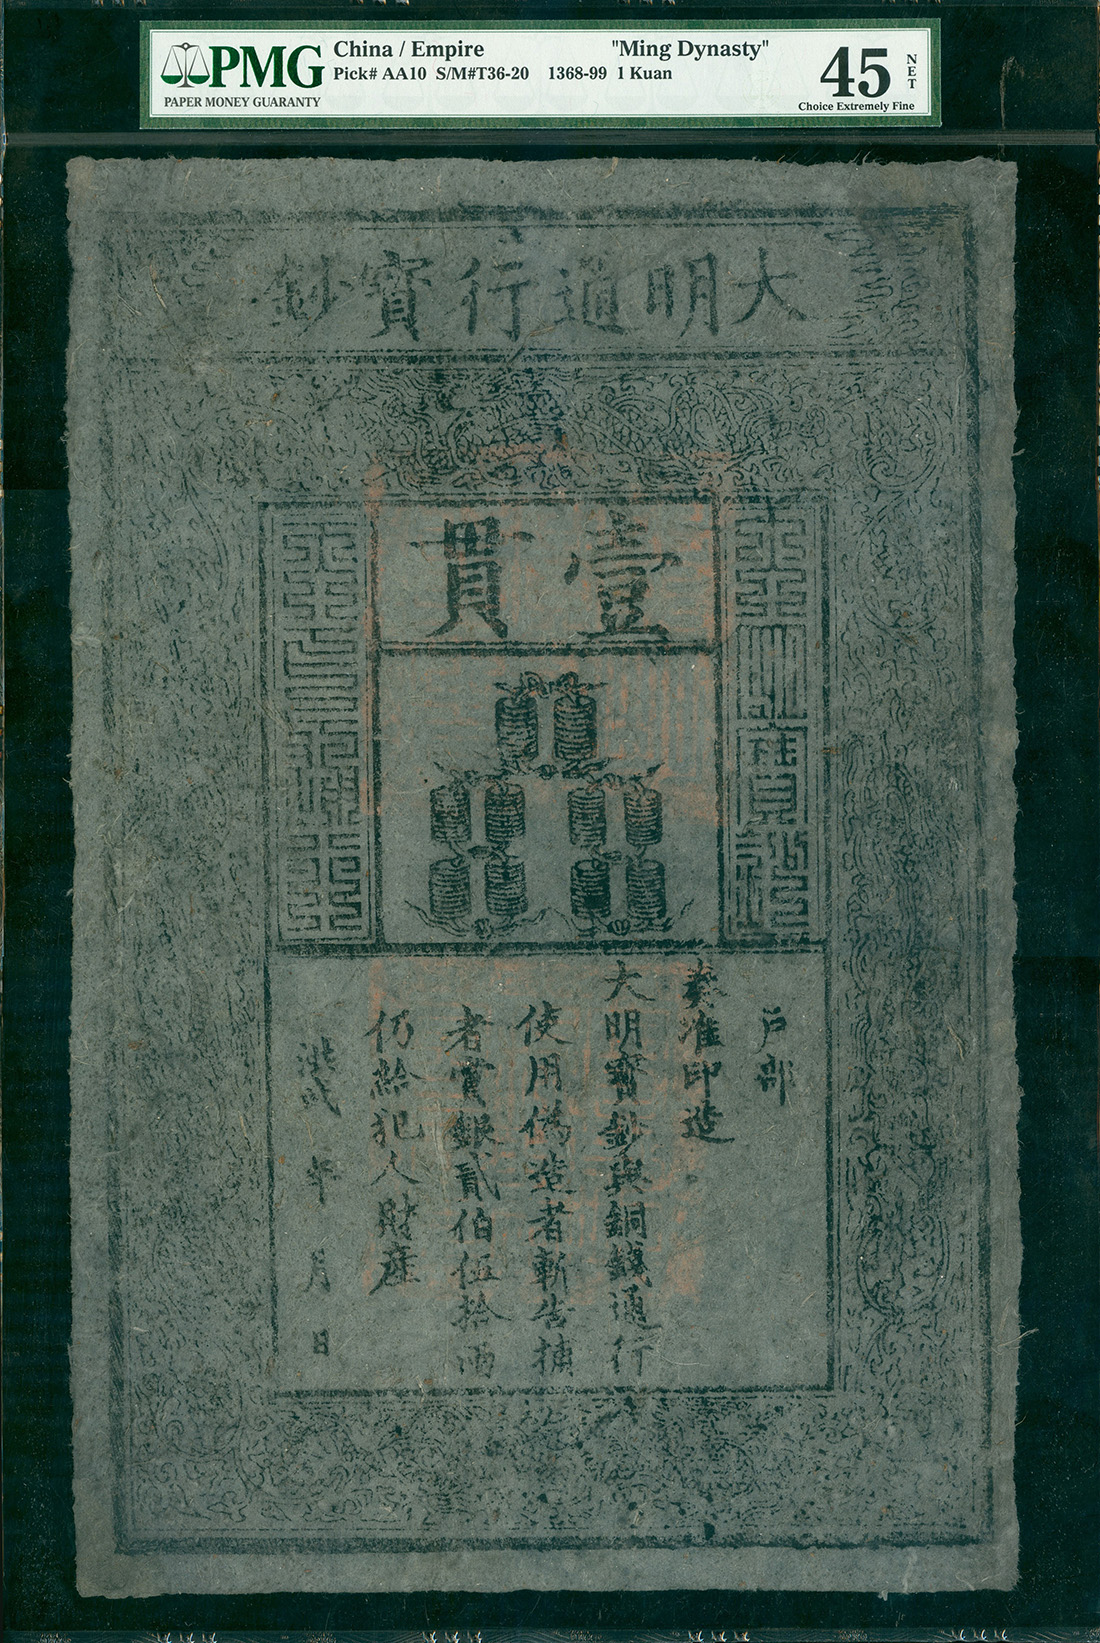 PMG
PAPER MONEY GUARANTY
China / Empire "Ming Dynasty"
Pick# AA10 S/M#T36-20 1368-99 1 Kuan
45 NET
Choice Extremely Fine
大明通行寶鈔
壹貫
大明寶鈔
天下通行
戶部
奏准印造
大明寶鈔與銅錢通行
使用偽造者斬告捕
者賞銀貳伯伍拾兩
仍給犯人財產
洪武 年 月 日